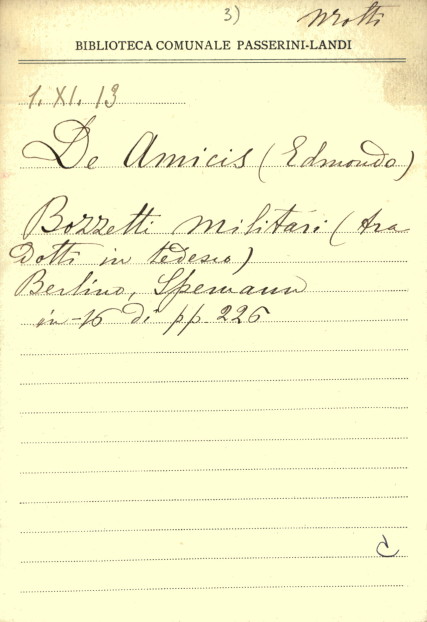 3)
BIBLIOTECA COMUNALE PASSERINI-LANDI
1. XI. 13
De Amicis (Edmondo)
Bozzetti militari (tra
dotti in tedesco)
Berlino, Spemann
in-16 di pp. 226
C